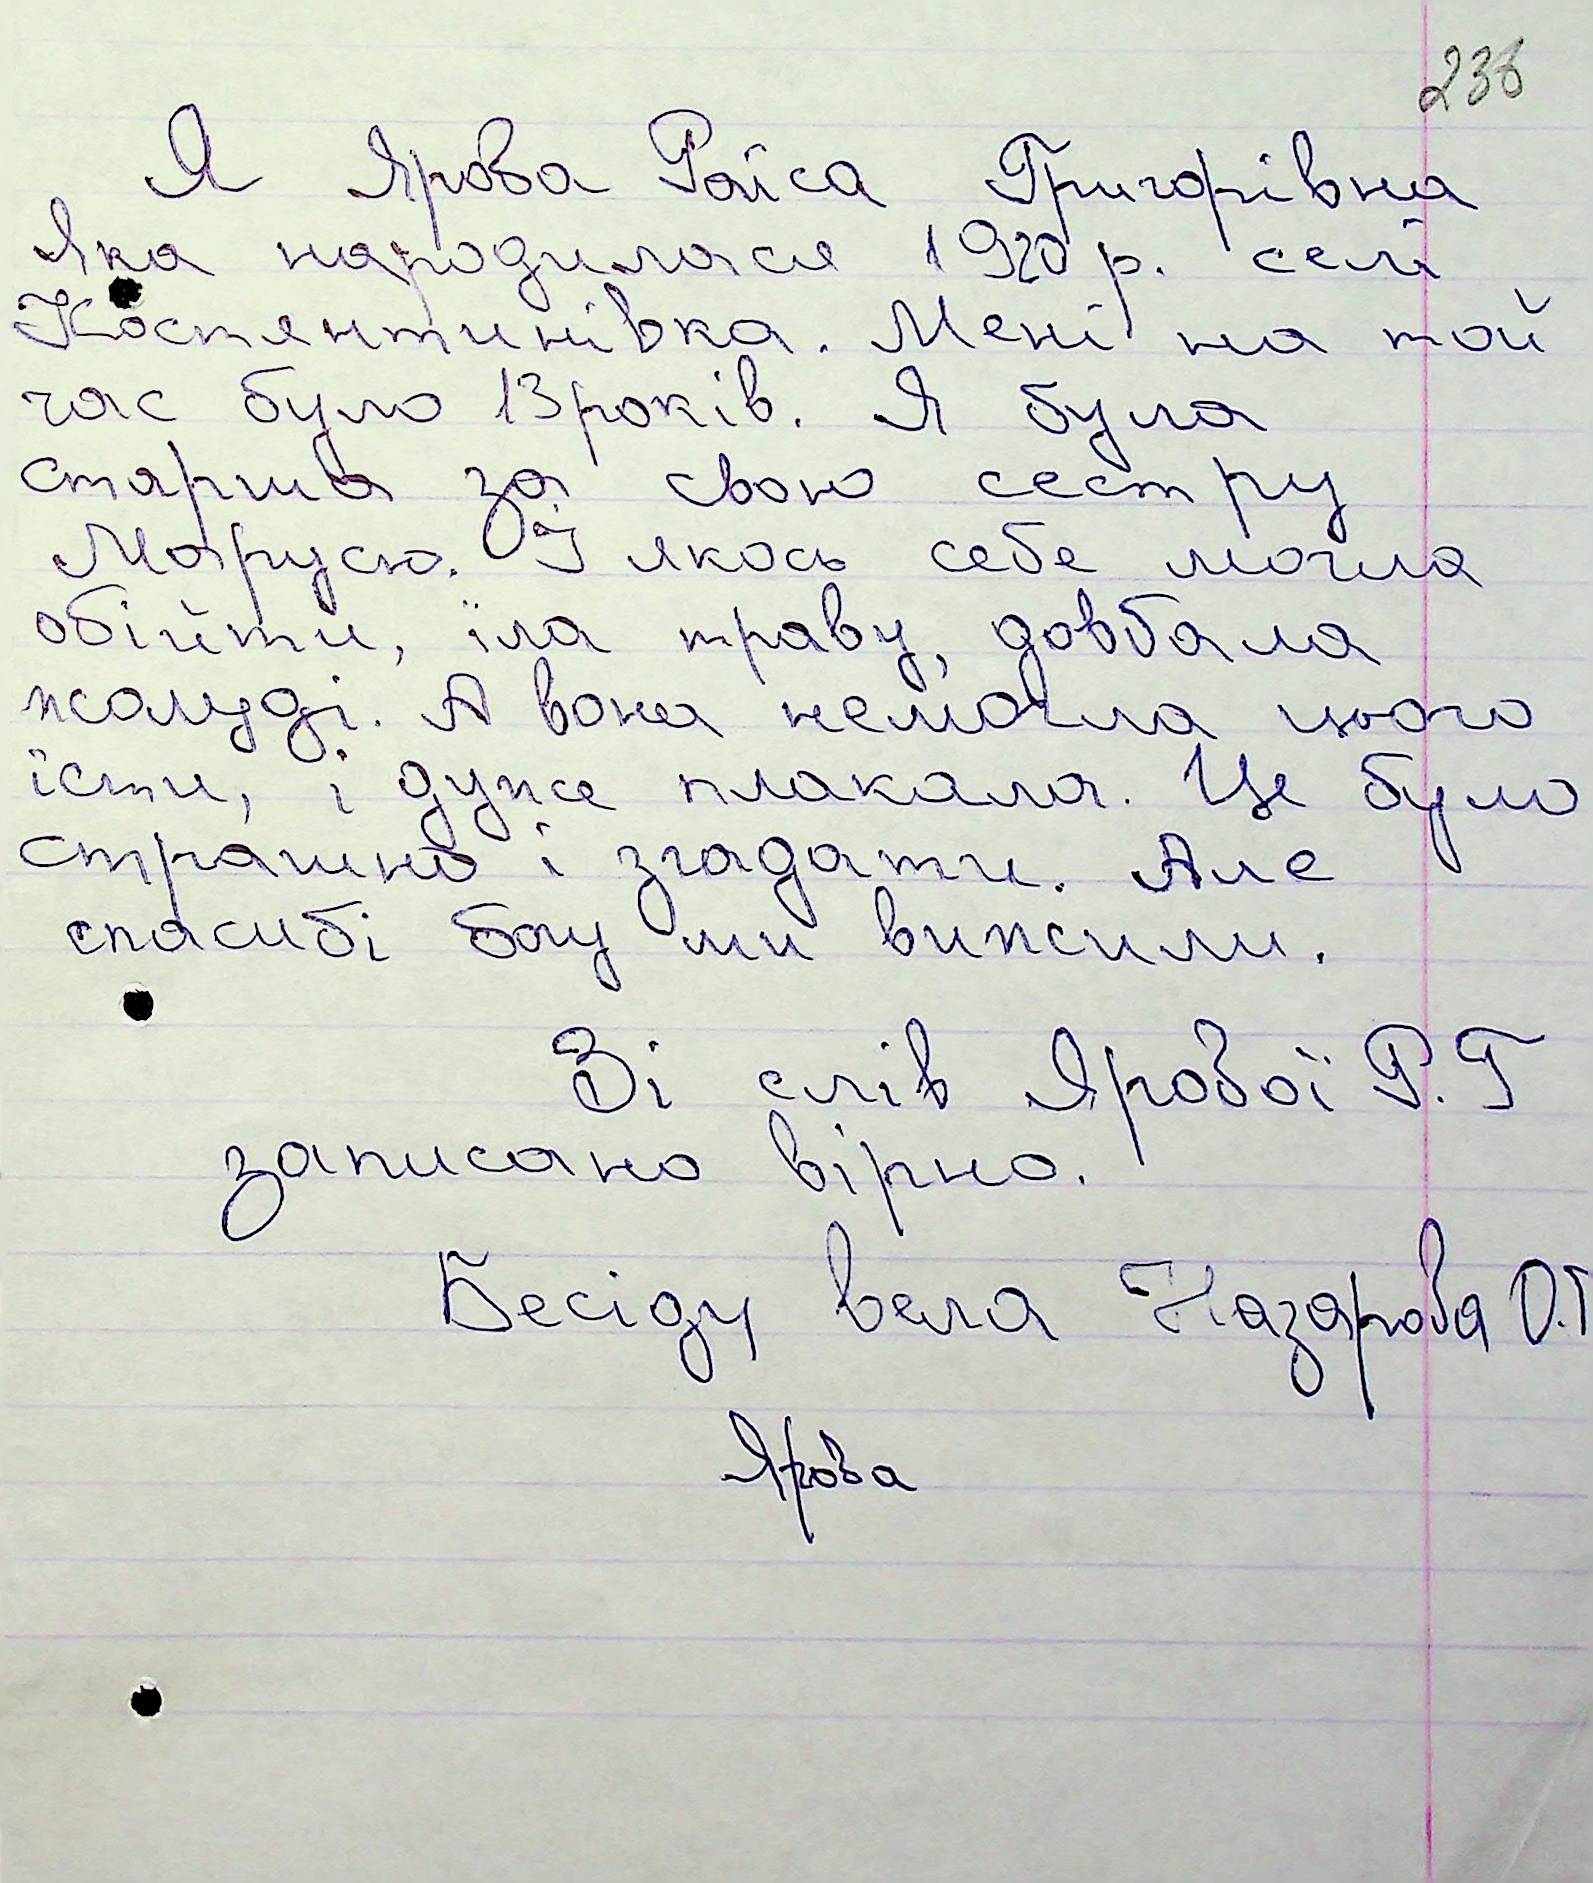 238
Я Ярова Раїса Григорівна
яка народилася 1920 р. селі
Костянтинівка. Мені на той
час було 13 років. Я була
старша за свою сестру
Марусю. І якось себе могла
обійти, їла траву, довбала
жолуді. А вона немогла цього
їсти, і дуже плакала. Це було
страшно і згадати. Але
спасибі богу ми вижили.
Зі слів Ярової Р.Г
записано вірно.
Бесіду вела Назарова О.Г
Ярова